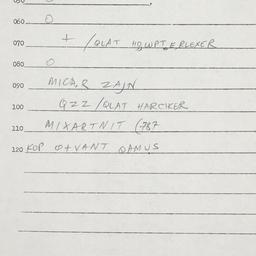 050
060 O
070 + /QLAT HQWPT ERLEXER
080 O
090 MICA, R ZAJN
100 QZZ/QLAT HARCIKER
110 MIXARTNIT (787
120 KOP O+VANT QAMUS